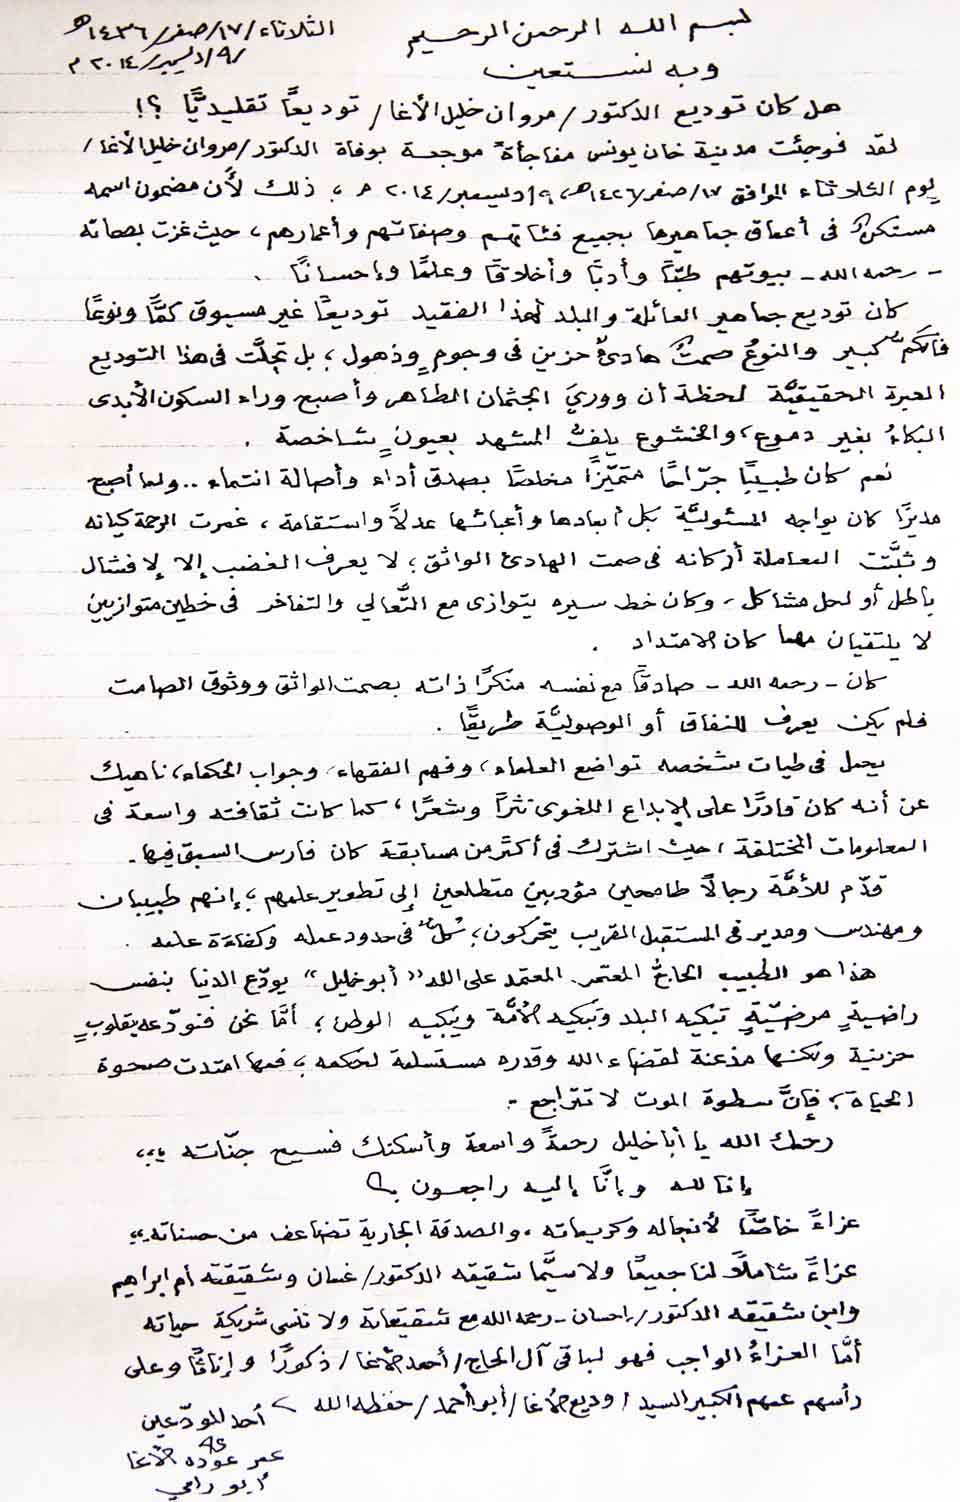 بسم الله الرحمن الرحيم
الثلاثاء/١٧/صفر/١٤٣٦هـ
٩/ديسمبر/٢٠١٤م
وبه نستعين
هل كان توديع الدكتور/مروان خليل الأغا/ توديعًا تقليديًّا ؟!
لقد فوجئت مدينة خان يونس مفاجأة موجعة بوفاة الدكتور/مروان خليل الأغا/
يوم الثلاثاء الموافق ١٧/صفر/١٤٣٦هـ، ٩/ديسمبر/٢٠١٤م ؛ ذلك لأن مضمون اسمه
مستكنٌ فى أعماق جماهيرها بجميع فئاتهم وصفاتهم وأعمارهم، حيث غزت بصماته
- رحمه الله - بيوتهم طبًّا وأدبًا وأخلاقًا وعلمًا وإحسانًا .
كان توديع جماهير العائلة والبلد لهذا الفقيد توديعًا غير مسبوق كمًّا ونوعًا
فالكم كبير والنوعُ صمتٌ هادئٌ حزين فى وجومٍ وذهول ؛ بل تجلَّت فى هذا التوديع
العبرة الحقيقيَّة لحظة أن ووريَ الجثمان الطاهر وأصبح وراء السكون الأبدى
البكاءُ بغير دموع، والخشوع يلفُّ المشهد بعيونٍ شاخصة .
نعم كان طبيبًا جرّاحًا متميّزًا مخلصًا بصدق أداء وأصالة انتماء .. ولما أصبح
مديرًا كان يواجه المسئوليَّة بكل أبعادها وأعبائها عدلاً واستقامة، غمرت الرحمة كيانه
وثبَّتت المعاملة أركانه فى صمت الهادئ الواثق ؛ لا يعرف الغضب إلا لإفشال
باطل أو لحل مشاكل، وكان خط سيره يتوازى مع التَّعالي والتفاخر فى خطين متوازيين
لا يلتقيان مهما كان الامتداد .
كان - رحمه الله - صادقًا مع نفسه منكرًا ذاته بصمت الواثق ووثوق الصامت
فلم يكن يعرف للنفاق أو الوصوليَّة طريقًا .
يحمل فى طيات شخصه تواضع العلماء، وفهم الفقهاء، وجواب الحكماء، ناهيك
عن أنه كان قادرًا على الإبداع اللغوى نثرًا وشعرًا ؛ كما كانت ثقافته واسعة فى
المعلومات المختلفة، حيث اشترك فى أكثر من مسابقة كان فارس السبق فيها .
قدّم للأمَّة رجالاً طامحين مؤدبين متطلعين إلى تطوير علمهم ؛ إنهم طبيبان
ومهندس ومدير فى المستقبل القريب يتحركون ؛ كلٌ فى حدود عمله وكفاءة علمه .
هذا هو الطبيب الحاجُّ المعتمر المعتمد على الله "أبو خليل" يودّع الدنيا بنفس
راضيةٍ مرضيّةٍ تبكيه البلد وتبكيه الأمَّة ويبكيه الوطن ؛ أمَّا نحن فنودّعه بقلوبٍ
حزينة ولكنها مذعنة لقضاء الله وقدره مستسلمة لحكمه ؛ فمهما امتدت صحوة
الحياة ؛ فإنَّ سطوة الموت لا تتراجع .
رحمك الله يا أبا خليل رحمةً واسعة وأسكنك فسيح جنّاته ،،،
إنا لله وإنَّا إليه راجعون
عزاءً خاصًّا لأنجاله وكريماته، والصدقة الجارية تضاعف من حسناته ،،
عزاءً شاملاً لنا جميعًا ولا سيَّما شقيقه الدكتور/غسان وشقيقته أم ابراهيم
وابن شقيقه الدكتور/إحسان - رحمه الله مع شقيقاته ولا ننسى شريكة حياته
أمَّا العزاءُ الواجب فهو لباقى آل الحاج/أحمد الأغا/ ذكورًا وإناثًا وعلى
رأسهم عمهم الكبير السيد/وديع الأغا/أبو أحمد/حفظه الله
أحد المودّعين
عمر عوده الأغا
أبو رامي